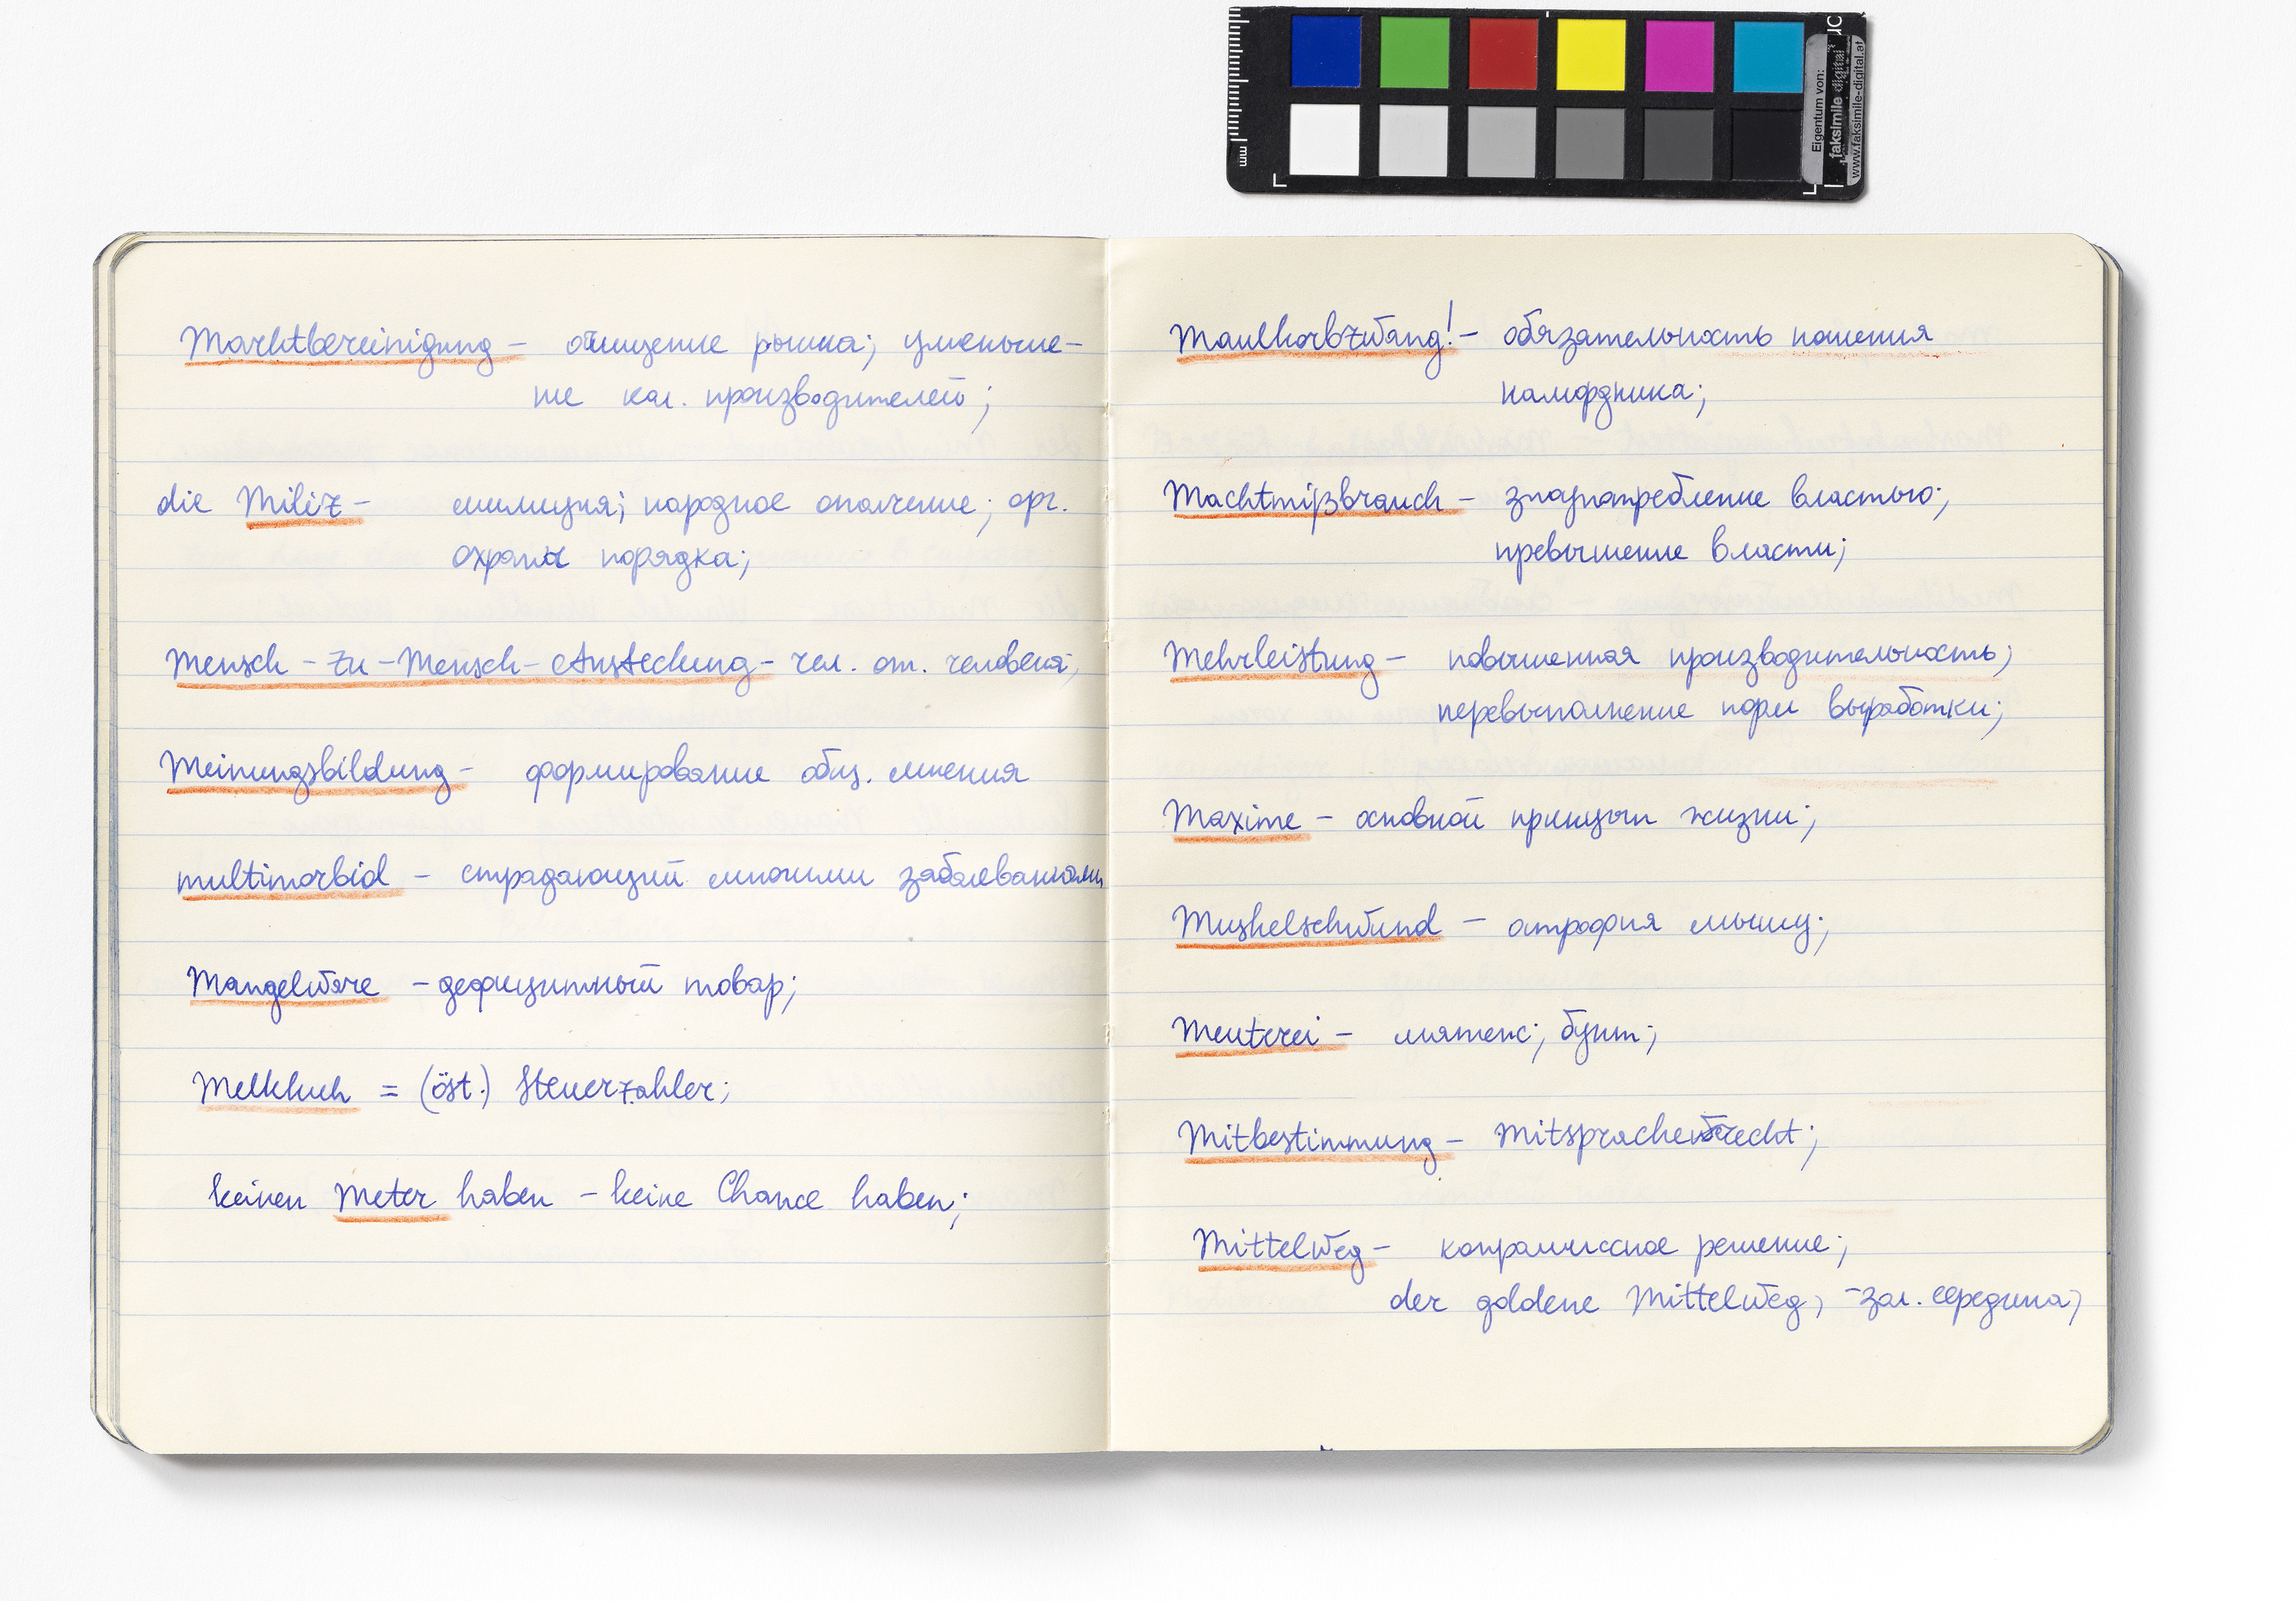 Marktbereinigung – очищение рынка; уменьше-
ние кол. производителей;
die Miliz – милиция; народное ополчение; орг.
охраны порядка;
Mensch-zu-Mensch-Ansteckung – чел. от. человека;
Meinungsbildung – формирование общ. мнения
multimorbid – страдающий многими заболеваниями
Mangelware – дефицитный товар;
Melkkuh = (öst.) Steuerzahler;
keinen Meter haben – keine Chance haben;
Maulkorbzwang! – обязательность ношения
намордника;
Machtmißbrauch – злоупотребление властью;
превышение власти;
Mehrleistung – повышенная производительность;
перевыполнение норм выработки;
Maxime – основной принцип жизни;
Muskelschwund – атрофия мышц;
Meuterei – мятеж; бунт;
Mitbestimmung – Mitspracherecht;
Mittelweg – компромиссное решение;
der goldene Mittelweg, – зол. середина;
mm
Eigentum von:
faksimile digital
www.faksimile-digital.at